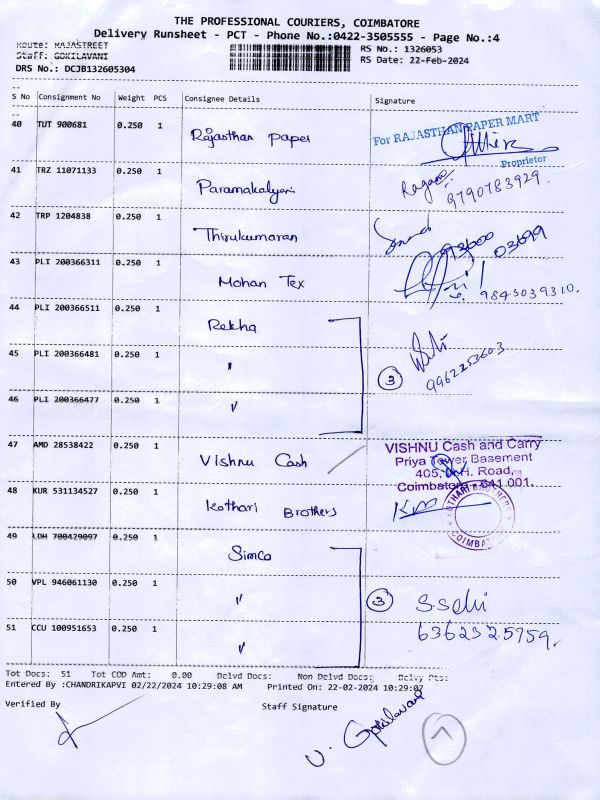 THE PROFESSIONAL COURIERS, COIMBATORE
Delivery Runsheet - PCT - Phone No.:0422-3505555 - Page No.:4
Route: RAJASTREET
RS No.: 1326053
Staff: GOKILAVANI
RS Date: 22-Feb-2024
DRS No.: DCJB132605304
S No Consignment No Weight PCS Consignee Details Signature
40 TUT 900681 0.250 1 Rajasthan paper
For RAJASTHAN PAPER MART
Proprietor
41 TRZ 11071133 0.250 1 Paramakalyani
9790783929.
42 TRP 1204838 0.250 1 Thirukumaran
03699
43 PLI 200366311 0.250 1 Mohan Tex
9845039310.
44 PLI 200366511 0.250 1 Rekha
45 PLI 200366481 0.250 1 "
3 9962253603
46 PLI 200366477 0.250 1 "
47 AMD 28538422 0.250 1 Vishnu Cash
VISHNU Cash and Carry
Priya Tower Basement
405, Road,
Coimbatore - 641 001.
48 KUR 531134527 0.250 1 Kothari Brothers
KOTHARI BROTHERS
COIMBA
49 LDH 700429097 0.250 1 Simco
50 VPL 946061130 0.250 1 "
3 S.Selvi
6362325759.
51 CCU 100951653 0.250 1 "
Tot Docs: 51 Tot COD Amt: 0.00 Delvd Docs: Non Delvd Docs: Delvy Pts:
Entered By :CHANDRIKAPVI 02/22/2024 10:29:08 AM Printed On: 22-02-2024 10:29:07
Verified By
Staff Signature
V. Gokilavani